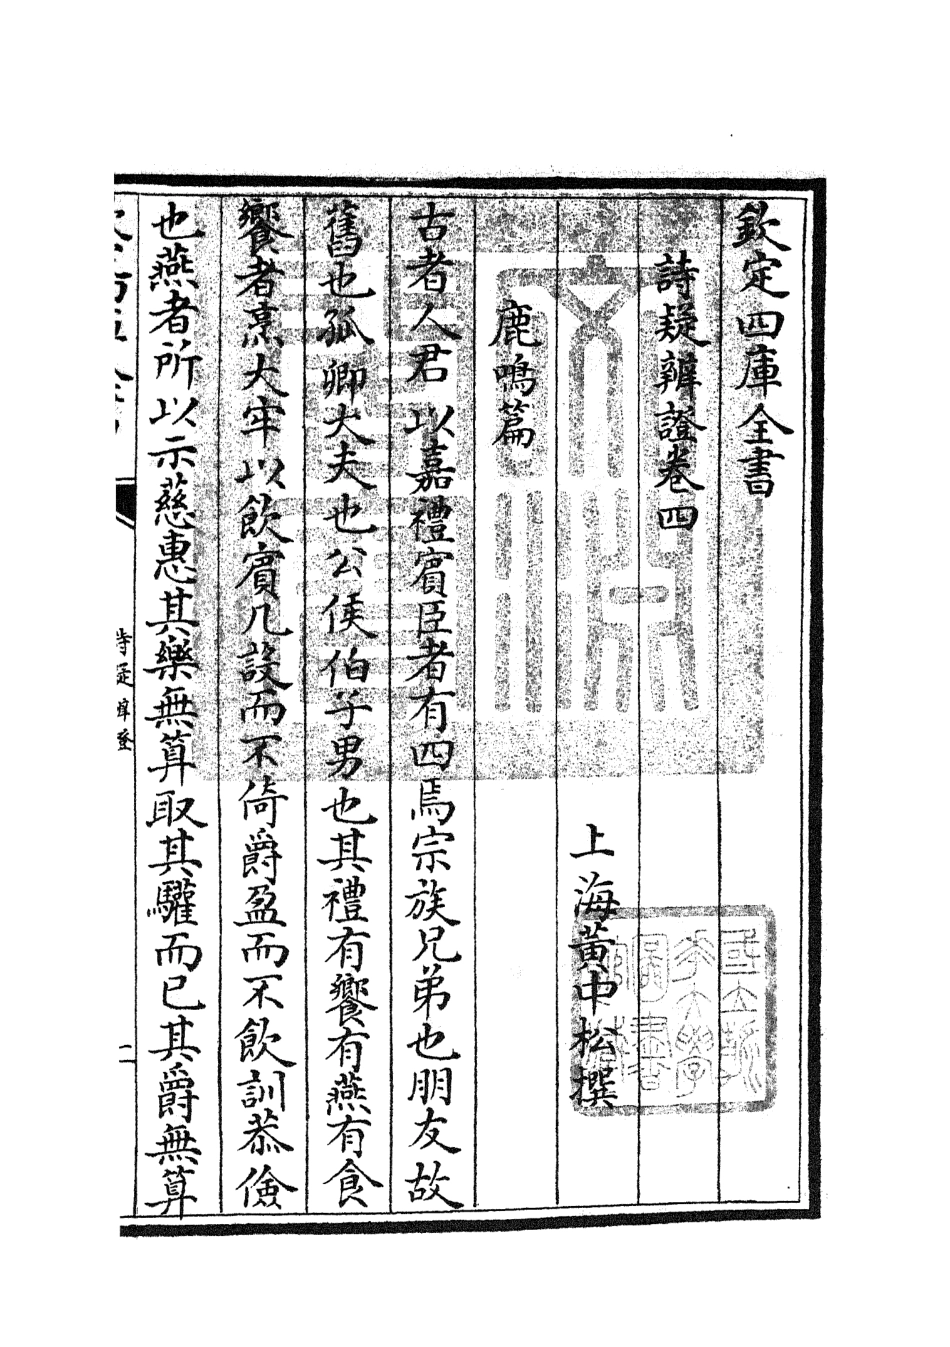 欽定四庫全書
詩疑辨證卷四
上海黃中松撰
鹿鳴篇
古者人君以嘉禮賓臣者有四焉宗族兄弟也朋友故
舊也孤卿大夫也公侯伯子男也其禮有饗有燕有食
饗者烹大牢以飲賓几設而不倚爵盈而不飲訓恭儉
也燕者所以示慈惠其樂無算取其驩而已其爵無算